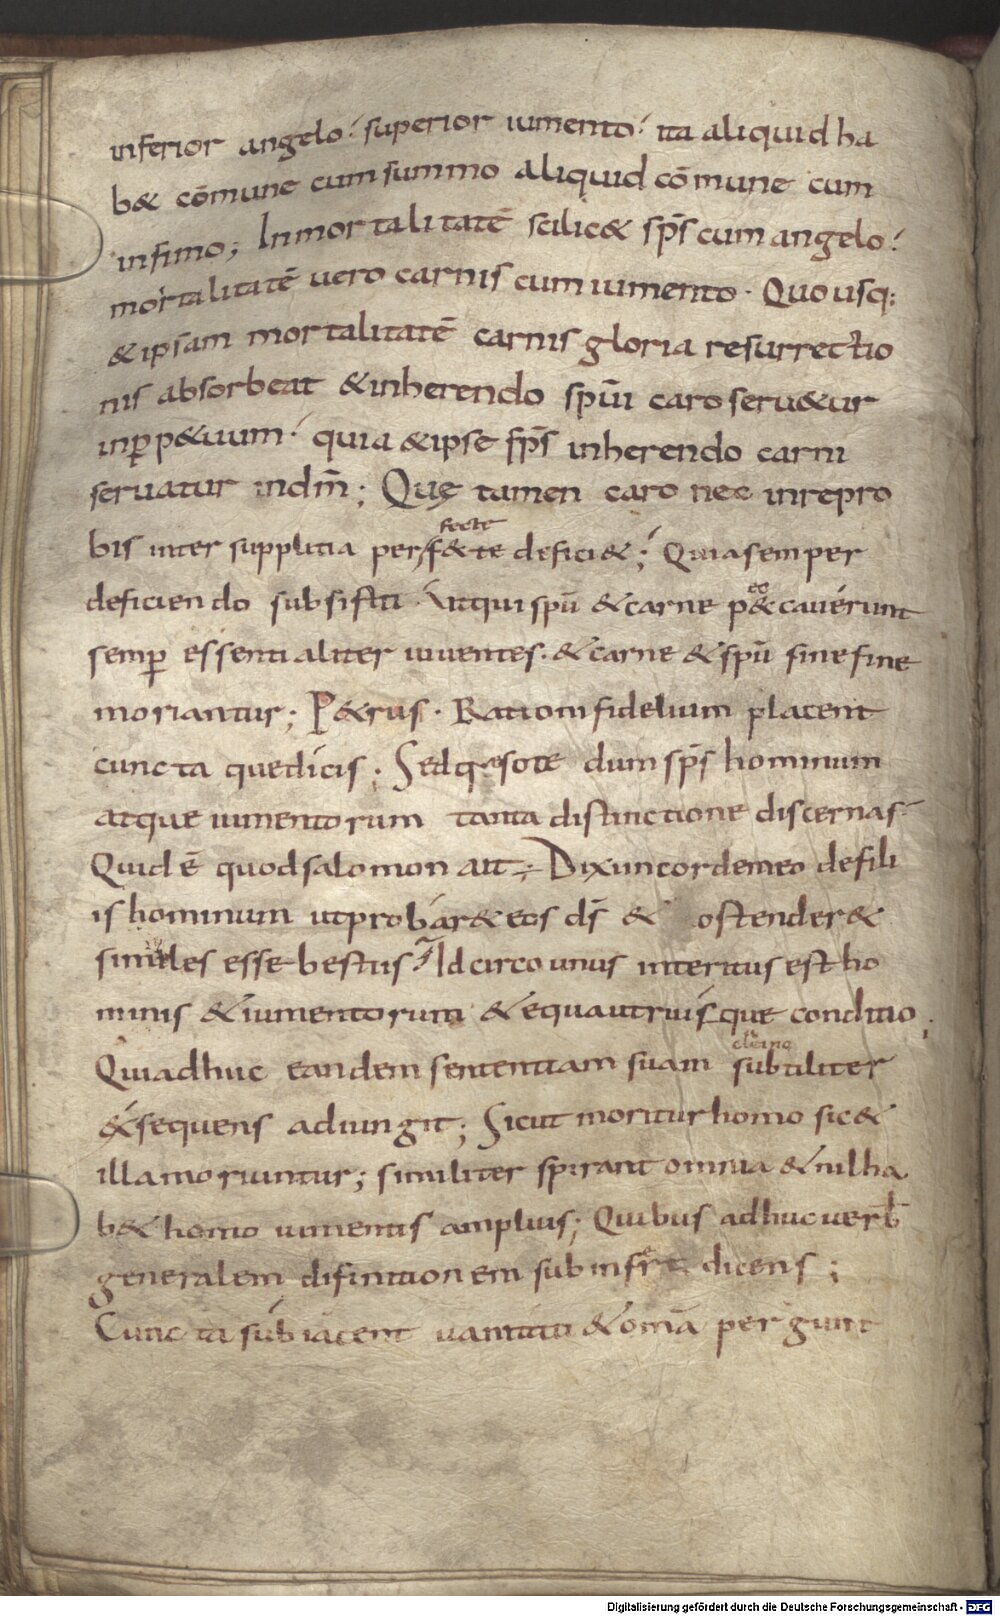 inferior angelo; superior iumento; ita aliquid ha
b& cōmune cum summo aliquid cōmune cum
infimo; Inmortalitatē scilic& sp̄s cum angelo;
mortalitatē vero carnis cum iumento. Quousq;
& ipsam mortalitatē carnis gloria resurrectio
nis absorbeat & inherendo spūi caro seru&ur
in ꝑp&uum. quia & ipse sp̄s inherendo carni
seruatur in dm̄; Quę tamen caro nec in repro
bis inter supplitia perf&te defici&; Quia semper
fecte
deficiendo subsistit. Ut qui spū & carne p&cauerunt
ec
semꝑ essentialiter uiuentes. & carne & spū sine fine
moriantur; P&rus. Rationi fidelium placent
cuncta que dicis; Sed quęso te dum sp̄s hominum
atque iumentorum tanta distinctione discernas.
Quid ē quod salomon ait; Dixi in corde meo de fili
is hominum ut probar& eos ds̄ & ostender&
similes esse bestiis Idcirco unus interitus est ho
minis & iumentorum & equa utriusque conditio;
Qui adhuc eandem sententiam suam subtiliter
& sequens adiungit; Sicut moritur homo sic &
illa moriuntur; similiter spirant omnia & nil ha
b& homo iumentis amplius; Quibus adhuc verb̄
generalem difinitionem subinfert dicens;
Cuncta subiacent uanitati & omīa pergunt
Digitalisierung gefördert durch die Deutsche Forschungsgemeinschaft - DFG